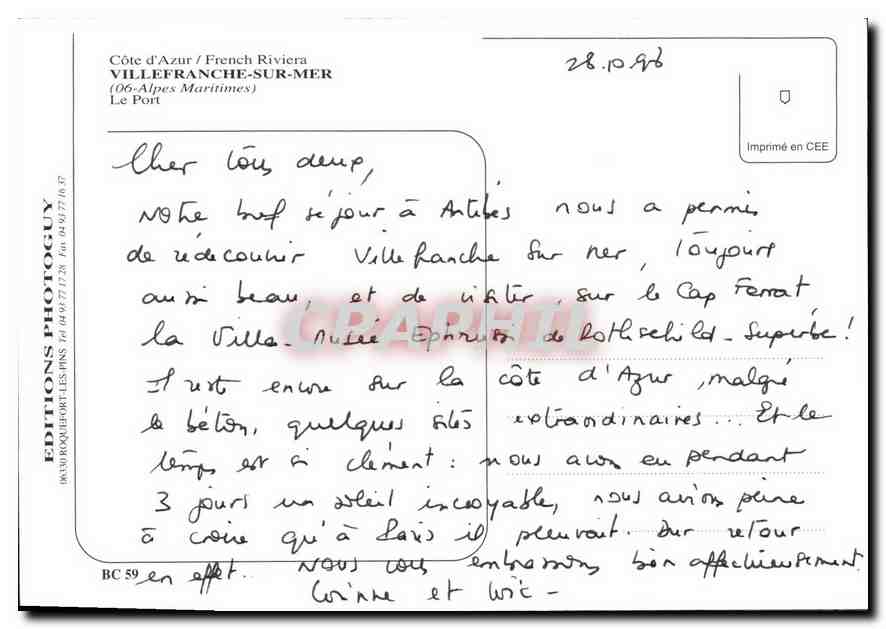 Côte d'Azur / French Riviera
VILLEFRANCHE-SUR-MER
(06-Alpes Maritimes)
Le Port
28.10.96
Imprimé en CEE
Cher tous deux,
Notre bref séjour à Antibes nous a permis
de redécouvrir Villefranche sur mer, toujours
aussi beau, et de visiter, sur le Cap Ferrat
la Villa-Musée Ephrussi de Rothschild - Superbe !
Il reste encore sur la côte d'Azur, malgré
le béton, quelques sites extraordinaires... Et le
temps est si clément : nous avons eu pendant
3 jours un soleil incroyable, nous avions peine
à croire qu'à Paris il pleuvait. Dur retour
en effet.. Nous vous embrassons bien affectueusement.
Corinne et Loïc -
EDITIONS PHOTOGUY
06330 ROQUEFORT-LES-PINS Tel 04 93 77 17 28 Fax 04 93 77 16 37
BC 59
CPAPHIL